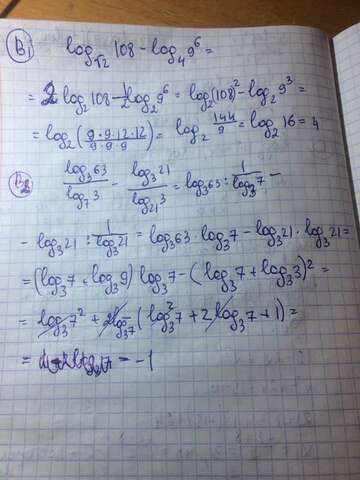 B1 log_√2 108 - log_4 9^6 =
= 2 log_2 108 - 1/2 log_2 9^6 = log_2(108)^2 - log_2 9^3 =
= log_2 (9·9·12·12 / 9·9·9) = log_2 144/9 = log_2 16 = 4
B2 log_3 63 / log_7 3 - log_3 21 / log_21 3 = log_3 63 : 1/log_3 7 -
- log_3 21 : 1/log_3 21 = log_3 63 · log_3 7 - log_3 21 · log_3 21 =
= (log_3 7 + log_3 9) log_3 7 - (log_3 7 + log_3 3)^2 =
= log_3 7^2 + 2log_3 7 - (log_3^2 7 + 2log_3 7 + 1) =
= = -1